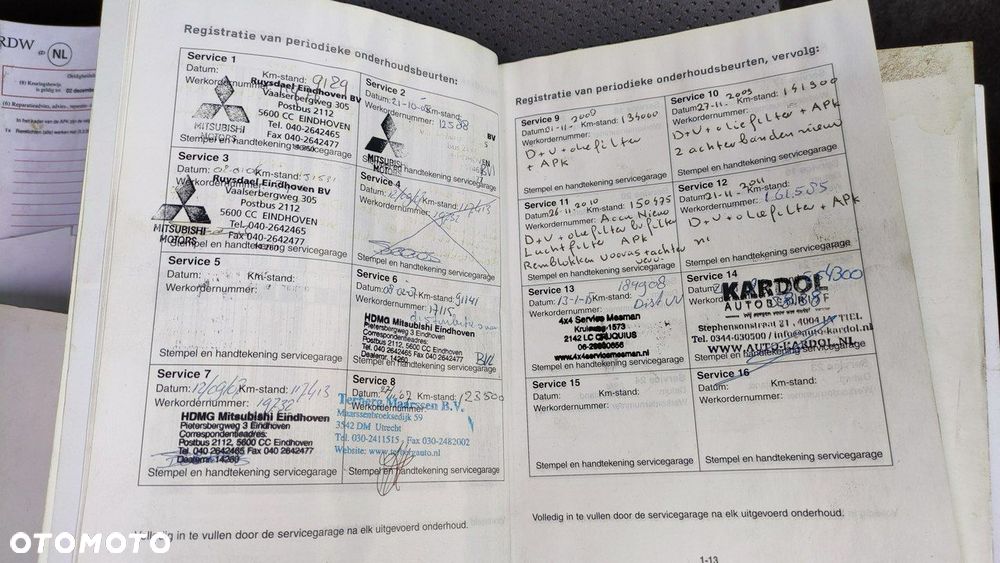 RDW
NL
02 decembe
Registratie van periodieke onderhoudsbeurten:
Service 1
Datum: Km-stand: 9189
Ruysdael Eindhoven BV
Vaalserbergweg 305
Postbus 2112
5600 CC EINDHOVEN
Tel. 040-2642465
Fax 040-2642477
MITSUBISHI
MOTORS
Stempel en handtekening servicegarage
Service 2
Datum: Km-stand:
Werkordernummer: 12588
MITSUBISHI
MOTORS
Stempel en handtekening servicegarage
Service 3
Datum: Km-stand:
Werkordernummer:
Ruysdael Eindhoven BV
Vaalserbergweg 305
Postbus 2112
5600 CC EINDHOVEN
Tel. 040-2642465
Fax 040-2642477
14260
MITSUBISHI
MOTORS
Stempel en handtekening servicegarage
Service 4
Datum: 12/09/07 Km-stand: 117413
Werkordernummer: 19732
Stempel en handtekening servicegarage
Service 5
Datum: Km-stand:
Werkordernummer:
Stempel en handtekening servicegarage
Service 6
Datum: 08-02-07 Km-stand: 91141
Werkordernummer: 17115
HDMG Mitsubishi Eindhoven
Pietersbergweg 3 Eindhoven
Correspondentieadres:
Postbus 2112, 5600 CC Eindhoven
Tel. 040 2642465 Fax 040 2642477
Dealernr. 14260
Stempel en handtekening servicegarage
Service 7
Datum: 12/09/07 Km-stand: 117413
Werkordernummer: 19732
HDMG Mitsubishi Eindhoven
Pietersbergweg 3 Eindhoven
Correspondentieadres:
Postbus 2112, 5600 CC Eindhoven
Tel. 040 2642465 Fax 040 2642477
Dealernr. 14260
Stempel en handtekening servicegarage
Service 8
Datum: Km-stand: 123500
Werkordernummer:
Terberg Maarssen B.V.
Maarssenbroeksedijk 59
3542 DM Utrecht
Tel. 030-2411515 Fax 030-2482002
Website: www.terbergauto.nl
Stempel en handtekening servicegarage
Volledig in te vullen door de servicegarage na elk uitgevoerd onderhoud.
Registratie van periodieke onderhoudsbeurten, vervolg:
Service 9
Datum: 01-11-2008 Km-stand: 134000
Werkordernummer:
D+V+oliefilter
+ APK
Stempel en handtekening servicegarage
Service 10
Datum: 27-11-2009 Km-stand: 141300
Werkordernummer:
D+V+oliefilter + APK
2 achterbanden nieuw
Stempel en handtekening servicegarage
Service 11
Datum: 26-11-2010 Km-stand: 150975
Werkordernummer: Accu Nieuw
Luchtfilter APK
Remblokken
Service 12
Datum: 21-11-2011 Km-stand: 161.585
Werkordernummer:
D+V+oliefilter + APK
Stempel en handtekening servicegarage
Service 13
Datum: Km-stand: 184908
Werkordernummer:
4x4 Service Mesman
Kruisweg 1573
2142 LC CRUQUIUS
www.4x4servicemesman.nl
Stempel en handtekening servicegarage
Service 14
KARDOL
AUTOBEDRIJF
Stephensonstraat 21, 4004 JA TIEL
Tel. 0344-630500 / info@auto-kardol.nl
WWW.AUTO-KARDOL.NL
Service 15
Datum: Km-stand:
Werkordernummer:
Stempel en handtekening servicegarage
Service 16
Datum: Km-stand:
Werkordernummer:
Stempel en handtekening servicegarage
Volledig in te vullen door de servicegarage na elk uitgevoerd onderhoud.
1-13
OTOMOTO